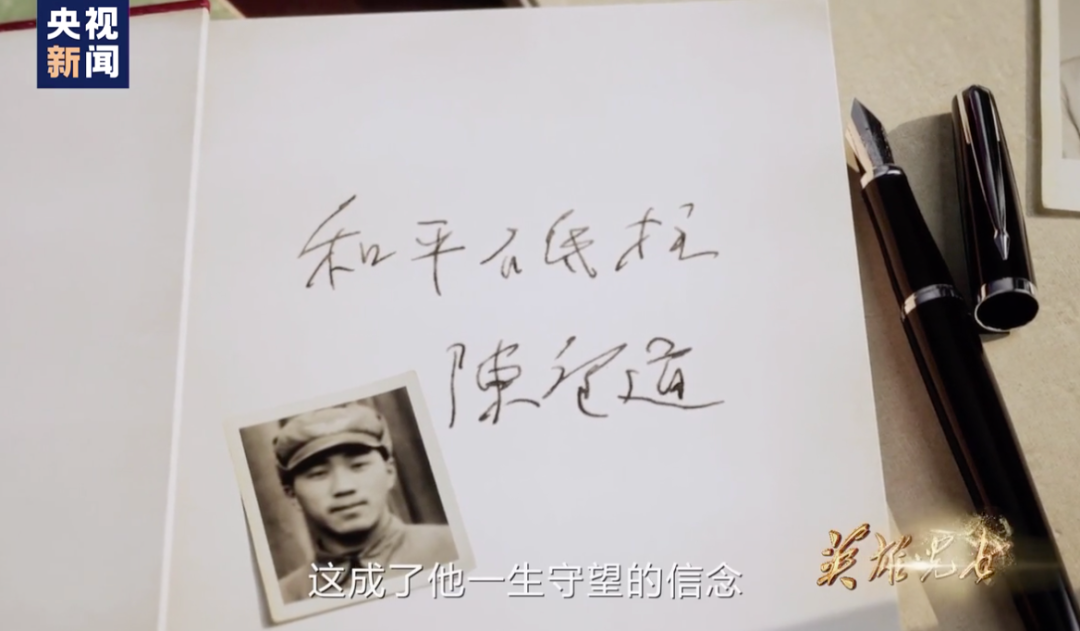 央视
新闻
和平砥柱
陳 道
这成了他一生守望的信念
英雄兒女